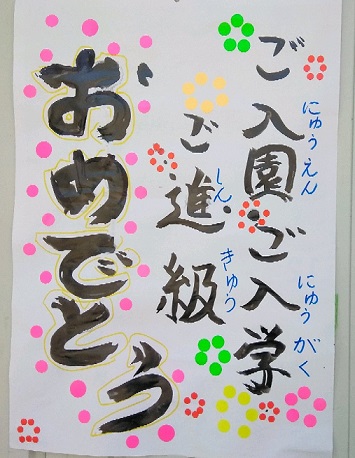 ご入園ご入学
にゅうえん
にゅうがく
ご進級
しんきゅう
おめでとう